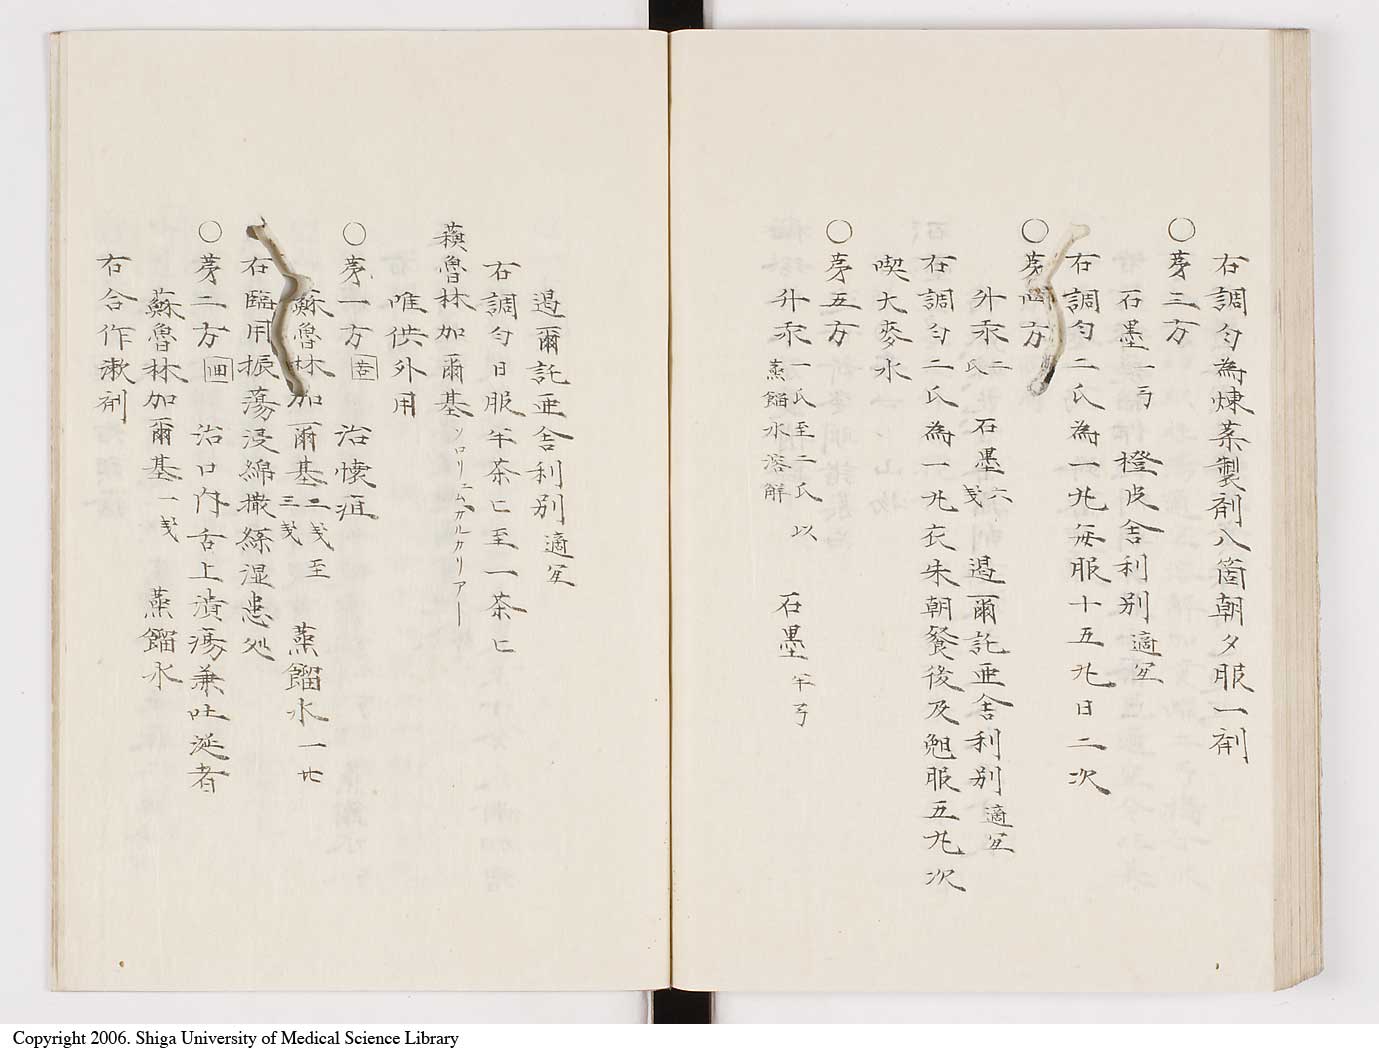 右調匀為煉菓製剤八箇朝夕服一剤
○茅三方
石墨一弓 橙皮舎利別適宜
右調匀二氏為一丸毎服十五丸日二次
○茅四方
升汞二氏 石墨六戔 遏爾託亜舎利別適宜
右調匀二氏為一丸衣朱朝餐後及勉服五丸次
喫大麥水
○茅五方
升汞一氏至二氏以蒸餾水溶解 石墨半弓
遏爾託亜舎利別適宜
右調匀日服半茶匕至一茶匕
蘓魯林加爾基ソロリーニムカルカリアー
唯供外用
○茅一方 治悽疽
蘓魯林加爾基二戔至三戔 蒸餾水一
右臨用振蕩浸綿撒絲湿患処
○茅二方 治口内舌上潰瘍兼吐涎者
蘓魯林加爾基一戔 蒸餾水
右合作漱剤
Copyright 2006. Shiga University of Medical Science Library